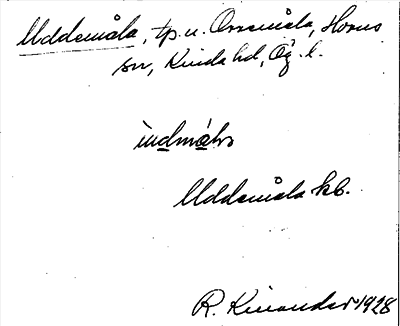 Uddemåla, tp. u. Orremåla, Horns
sn, Kinda hd, Ög. l.
ùdmå̀la
Uddemåla kb.
R. Kinander 1928